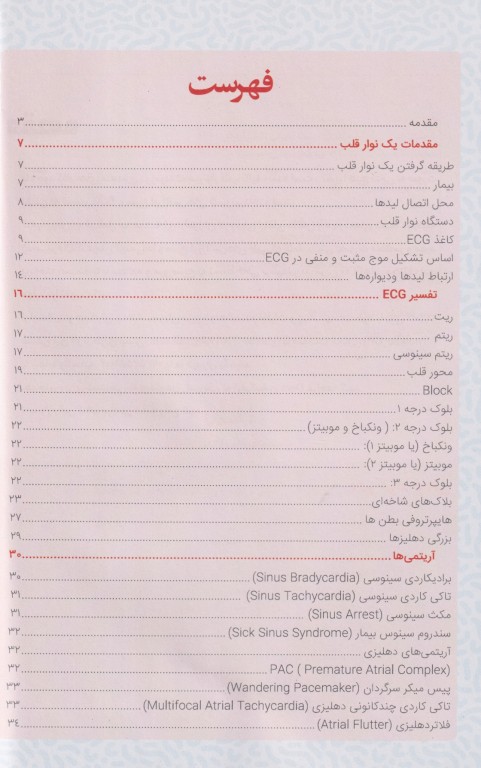 فهرست
مقدمه ۳
مقدمات یک نوار قلب ۷
طریقه گرفتن یک نوار قلب ۷
بیمار ۷
محل اتصال لیدها ۸
دستگاه نوار قلب ۹
کاغذ ECG ۹
اساس تشکیل موج مثبت و منفی در ECG ۱۲
ارتباط لیدها ودیواره‌ها ۱۴
تفسیر ECG ۱۶
ریت ۱۶
ریتم ۱۷
ریتم سینوسی ۱۷
محور قلب ۱۹
Block ۲۱
بلوک درجه ۱ ۲۱
بلوک درجه ۲: ( ونکباخ و موبیتز) ۲۲
ونکباخ (یا موبیتز ۱): ۲۲
موبیتز (یا موبیتز ۲): ۲۲
بلوک درجه ۳: ۲۲
بلاک‌های شاخه‌ای ۲۳
هایپرتروفی بطن ها ۲۷
بزرگی دهلیزها ۲۹
آریتمی‌ها ۳۰
برادیکاردی سینوسی (Sinus Bradycardia) ۳۰
تاکی کاردی سینوسی (Sinus Tachycardia) ۳۱
مکث سینوسی (Sinus Arrest) ۳۱
سندروم سینوس بیمار (Sick Sinus Syndrome) ۳۲
آریتمی‌های دهلیزی ۳۲
PAC ( Premature Atrial Complex) ۳۲
پیس میکر سرگردان (Wandering Pacemaker) ۳۳
تاکی کاردی چندکانونی دهلیزی (Multifocal Atrial Tachycardia) ۳۳
فلاتردهلیزی (Atrial Flutter) ۳۴